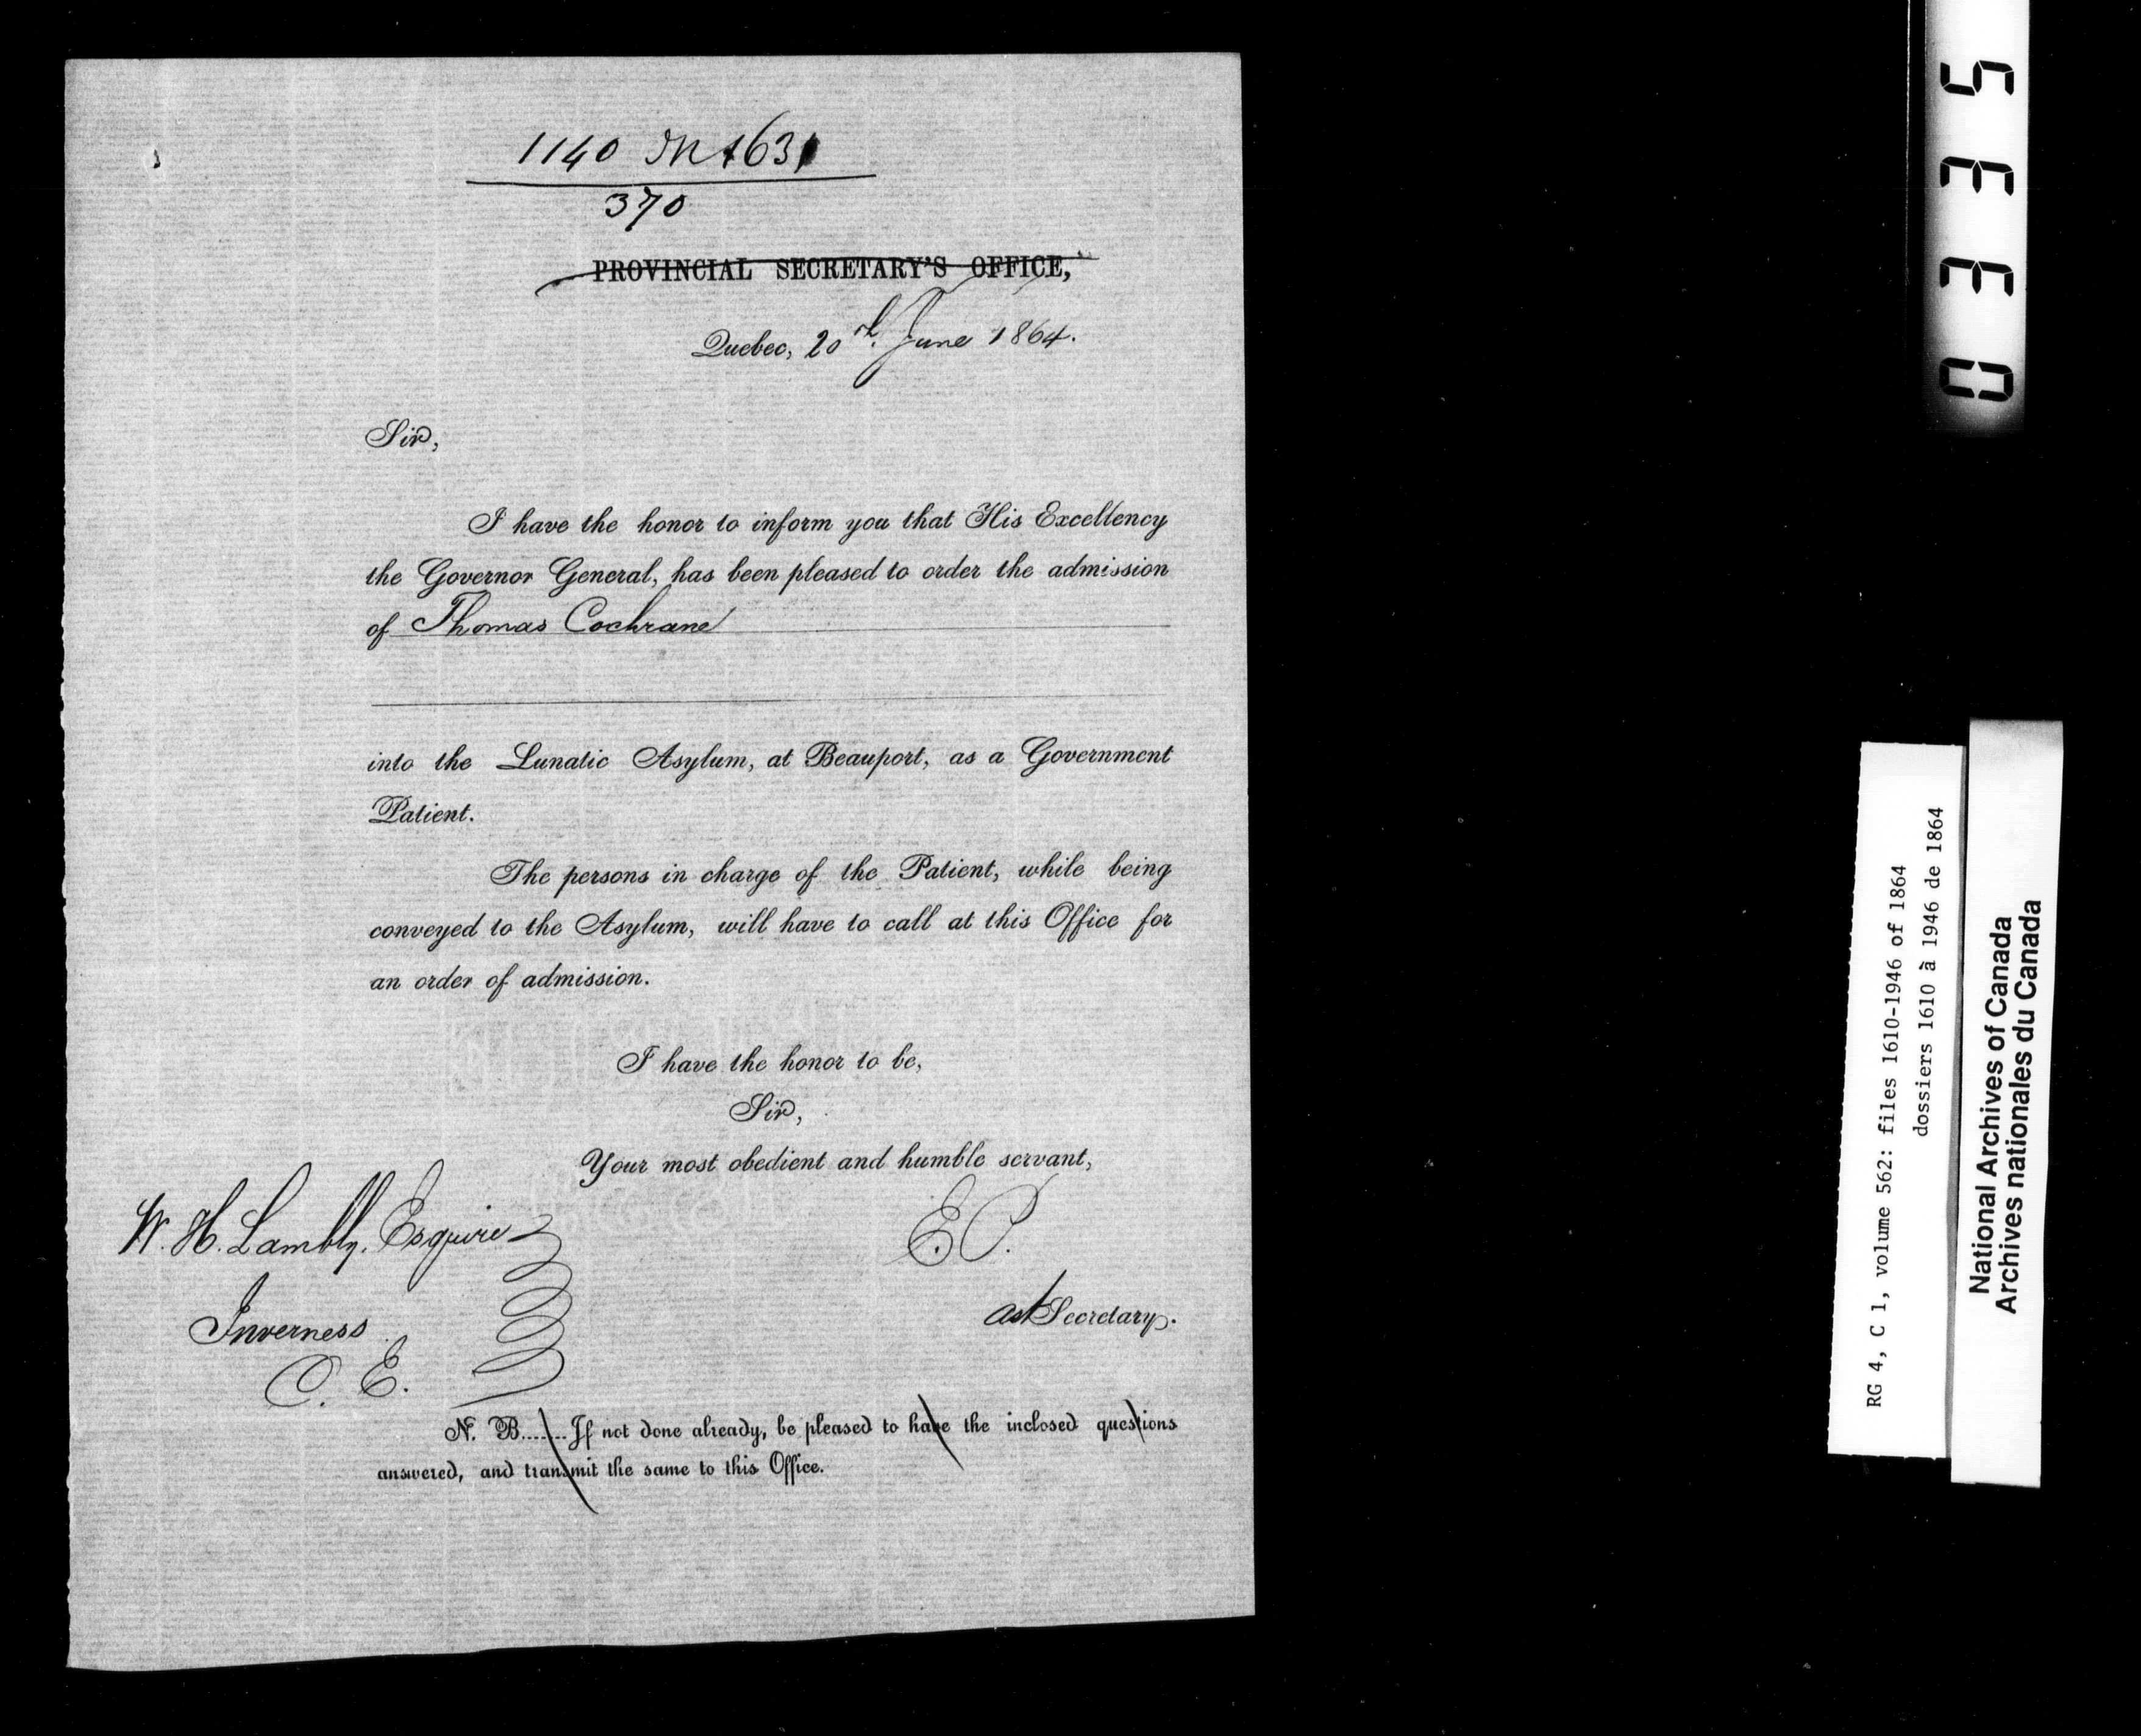 1140 M 1631
370
PROVINCIAL SECRETARY'S OFFICE,
Quebec, 20th. June 1864.
Sir,
I have the honor to inform you that His Excellency
the Governor General, has been pleased to order the admission
of Thomas Cochrane
into the Lunatic Asylum, at Beauport, as a Government
Patient.
The persons in charge of the Patient, while being
conveyed to the Asylum, will have to call at this Office for
an order of admission.
I have the honor to be,
Sir,
Your most obedient and humble servant,
W. H. Lambly, Esquire
E. P.
Inverness
Ast Secretary.
C. E.
N. B....... If not done already, be pleased to have the inclosed questions
answered, and transmit the same to this Office.
0335
RG 4, C 1, volume 562: files 1610-1946 of 1864
dossiers 1610 à 1946 de 1864
National Archives of Canada
Archives nationales du Canada